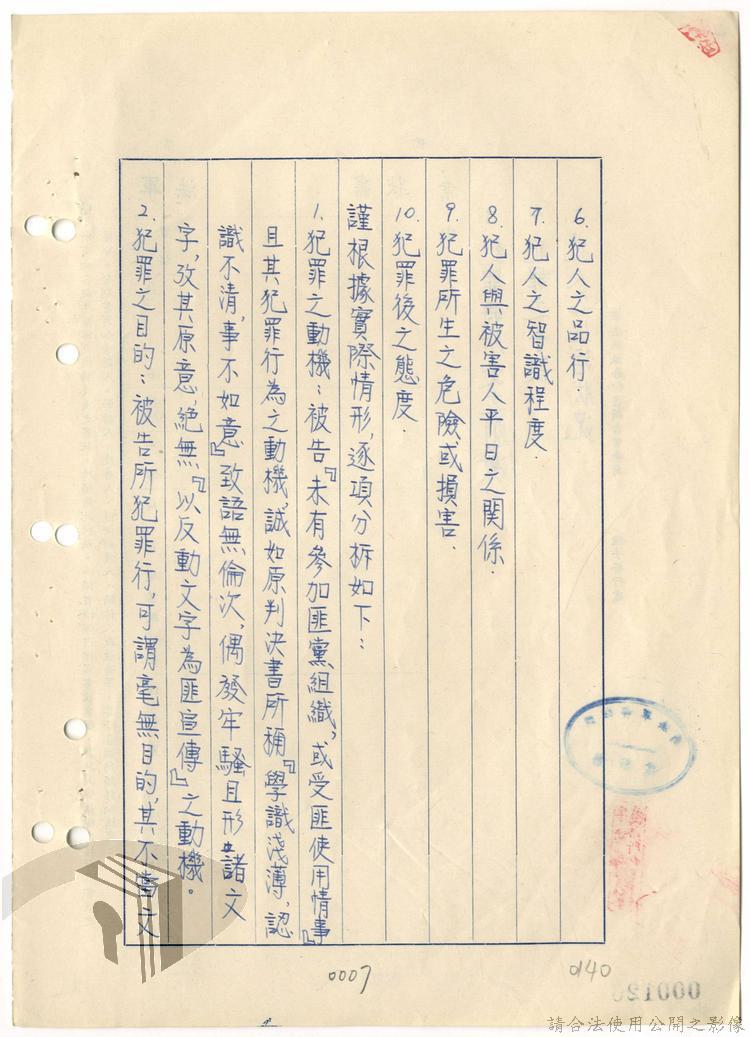 6. 犯人之品行.
7. 犯人之智識程度.
8. 犯人與被害人平日之關係.
9. 犯罪所生之危險或損害.
10. 犯罪後之態度.
謹根據實際情形,逐項分拆如下:
1. 犯罪之動機:被告『未有參加匪黨組織,或受匪使用情事』
且其犯罪行為之動機,誠如原判決書所稱『學識淺薄,認
識不清,事不如意』致語無倫次,偶發牢騷且形諸文
字,攷其原意,絕無『以反動文字為匪宣傳』之動機。
2. 犯罪之目的:被告所犯罪行,可謂毫無目的,其不書文
0007
0140
請合法使用公開之影像